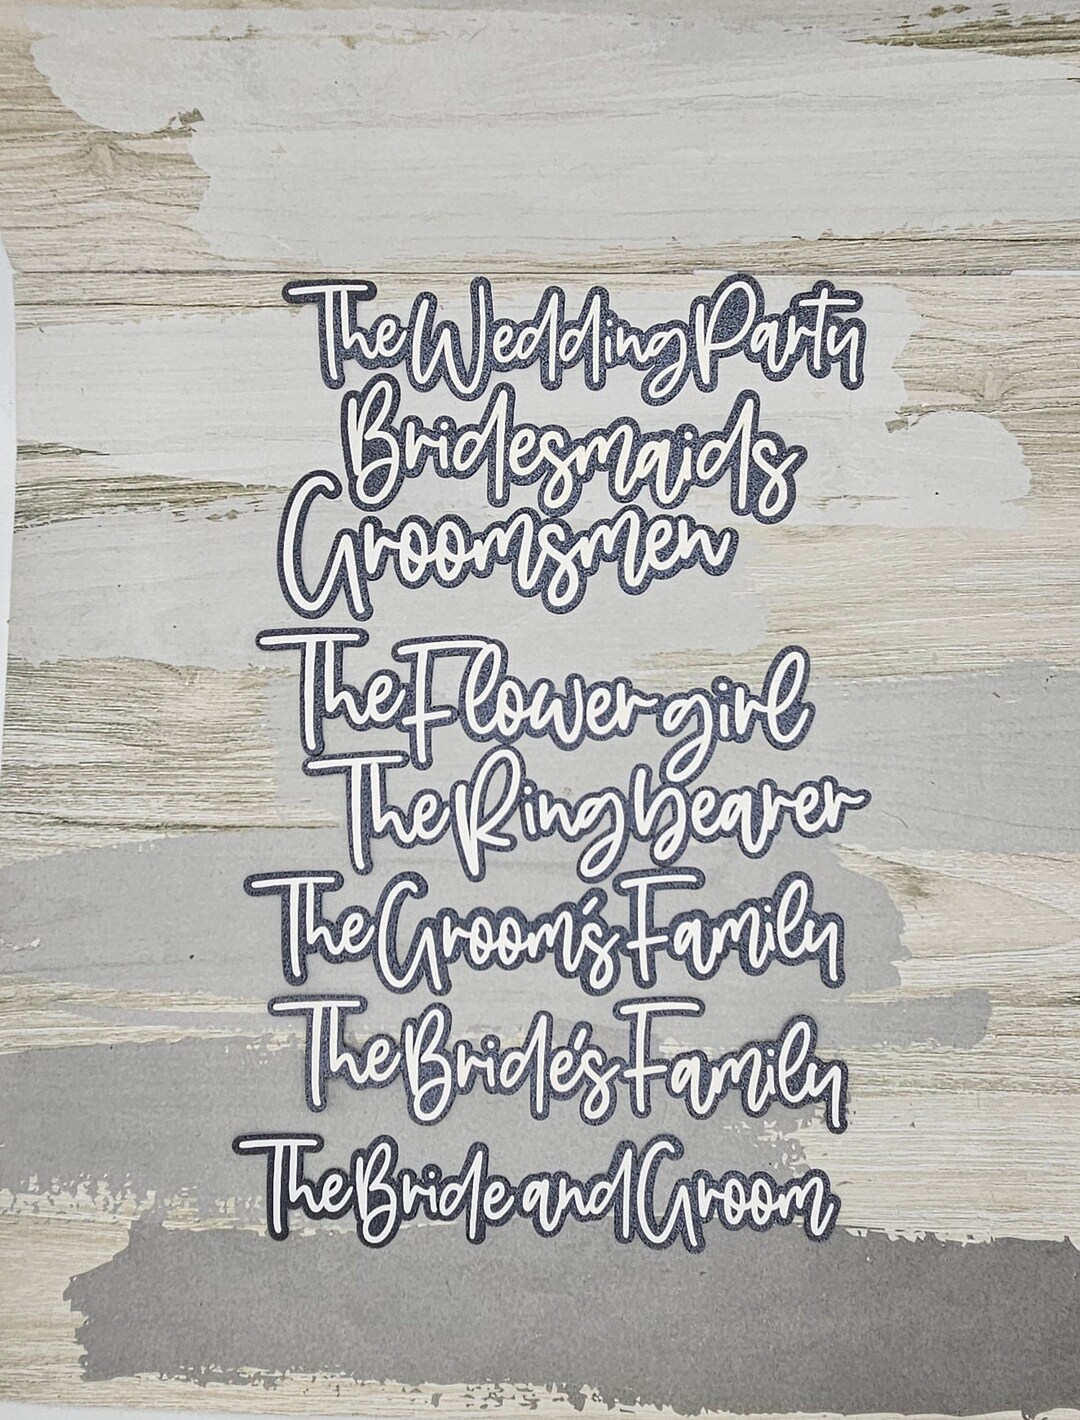 The Wedding Party
Bridesmaids
Groomsmen
The Flower girl
The Ring bearer
The Groom's Family
The Bride's Family
The Bride and Groom